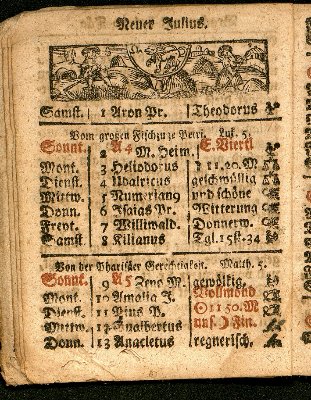 Neuer Julius.
Samst. 1 Aron Pr. Theodorus
Vom grossen Fischzuge Petri. Luk. 5.
Sonnt. 2 A4 M. Heim. E. Viertl
Mont. 3 Heliodorus 11.20.M
Dienst. 4 Udalricus gewöllig
Mittw. 5 Numerian9 und schöne
Donn. 6 Isaias Pr. Witterung
Freyt. 7 Williwald. Donnerw.
Samst 8 Kilianus Tgl.15st.34
Von der Pharisäer Gerechtigkeit. Matth. 5.
Sonnt. 9 A5 Zeno M. gewölkig,
Mont. 10 Amalia J. Vollmond
Dienst. 11 Pius P. 1150.M
Mittw. 12 Gualbertus uns. Fin.
Donn. 13 Anacletus regnerisch.